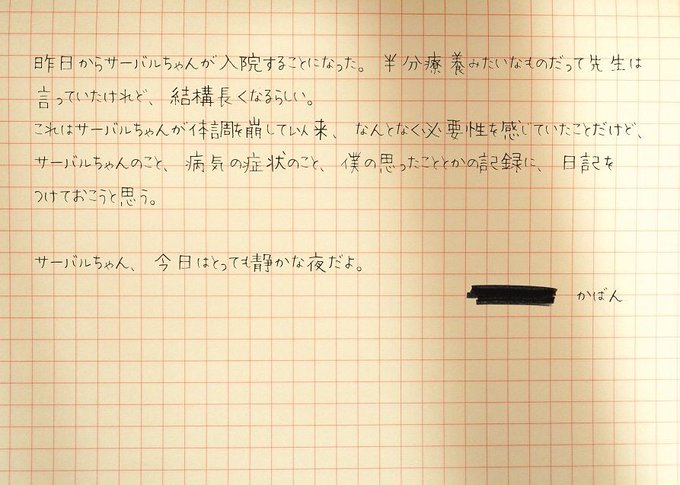 昨日からサーバルちゃんが入院することになった。半分療養みたいなものだって先生は
言っていたけれど、結構長くなるらしい。
これはサーバルちゃんが体調を崩して以来、なんとなく必要性を感じていたことだけど、
サーバルちゃんのこと、病気の症状のこと、僕の思ったこととかの記録に、日記を
つけておこうと思う。
サーバルちゃん、今日はとっても静かな夜だよ。
かばん